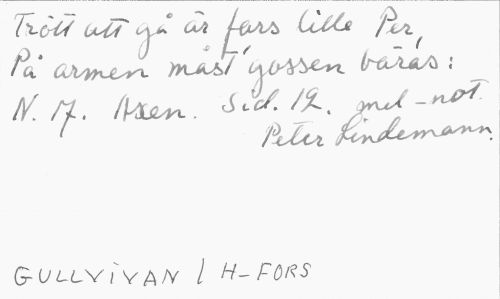 Trött att gå är fars lille Per,
På armen måst' gossen bäras:
N. 17. Axen. Sid. 12. mel-not.
Peter Lindemann.
GULLVIVAN / H-FORS